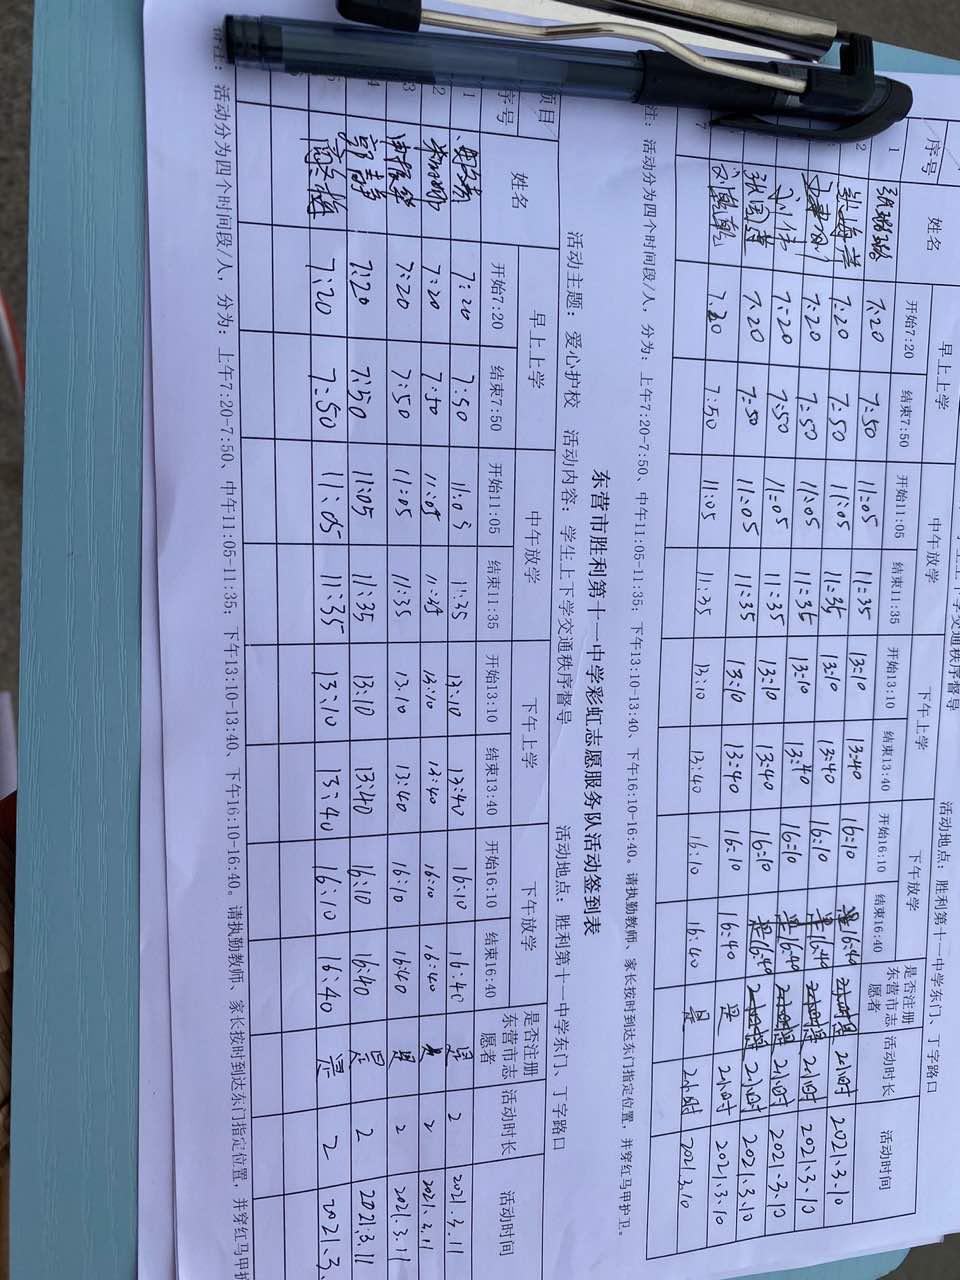 上下学交通秩序督导 活动地点：胜利第十一中学东门、丁字路口
序号 姓名 早上上学 中午放学 下午上学 下午放学 是否注册东营市志愿者 活动时长 活动时间
开始7:20 结束7:50 开始11:05 结束11:35 开始13:10 结束13:40 开始16:10 结束16:40
1 张璐璐 7:20 7:50 11:05 11:35 13:10 13:40 16:10 16:40 是 2小时 2021.3.10
2 7:20 7:50 11:05 11:35 13:10 13:40 16:10 16:40 是 2小时 2021.3.10
7:20 7:50 11:05 11:35 13:10 13:40 16:10 16:40 是 2小时 2021.3.10
刘伟 7:20 7:50 11:05 11:35 13:10 13:40 16:10 16:40 是 2小时 2021.3.10
7:20 7:50 11:05 11:35 13:10 13:40 16:10 16:40 是 2小时 2021.3.10
7 7:20 7:50 11:05 11:35 13:10 13:40 16:10 16:40 是 2小时 2021.3.10
注：活动分为四个时间段/人，分为：上午7:20-7:50、中午11:05-11:35；下午13:10-13:40、下午16:10-16:40。请执勤教师、家长按时到达东门指定位置，并穿红马甲护卫。
东营市胜利第十一中学彩虹志愿服务队活动签到表
活动主题：爱心护校 活动内容：学生上下学交通秩序督导 活动地点：胜利第十一中学东门、丁字路口
项目 序号 姓名 早上上学 中午放学 下午上学 下午放学 是否注册东营市志愿者 活动时长 活动时间
开始7:20 结束7:50 开始11:05 结束11:35 开始13:10 结束13:40 开始16:10 结束16:40
1 7:20 7:50 11:05 11:35 13:10 13:40 16:10 16:40 是 2 2021.3.11
2 7:20 7:50 11:05 11:35 13:10 13:40 16:10 16:40 是 2 2021.3.11
3 7:20 7:50 11:05 11:35 13:10 13:40 16:10 16:40 是 2 2021.3.11
4 郭静 7:20 7:50 11:05 11:35 13:10 13:40 16:10 16:40 是 2 2021.3.11
7:20 7:50 11:05 11:35 13:10 13:40 16:10 16:40 是 2 2021.3.
备注：活动分为四个时间段/人，分为：上午7:20-7:50、中午11:05-11:35；下午13:10-13:40、下午16:10-16:40。请执勤教师、家长按时到达东门指定位置，并穿红马甲护